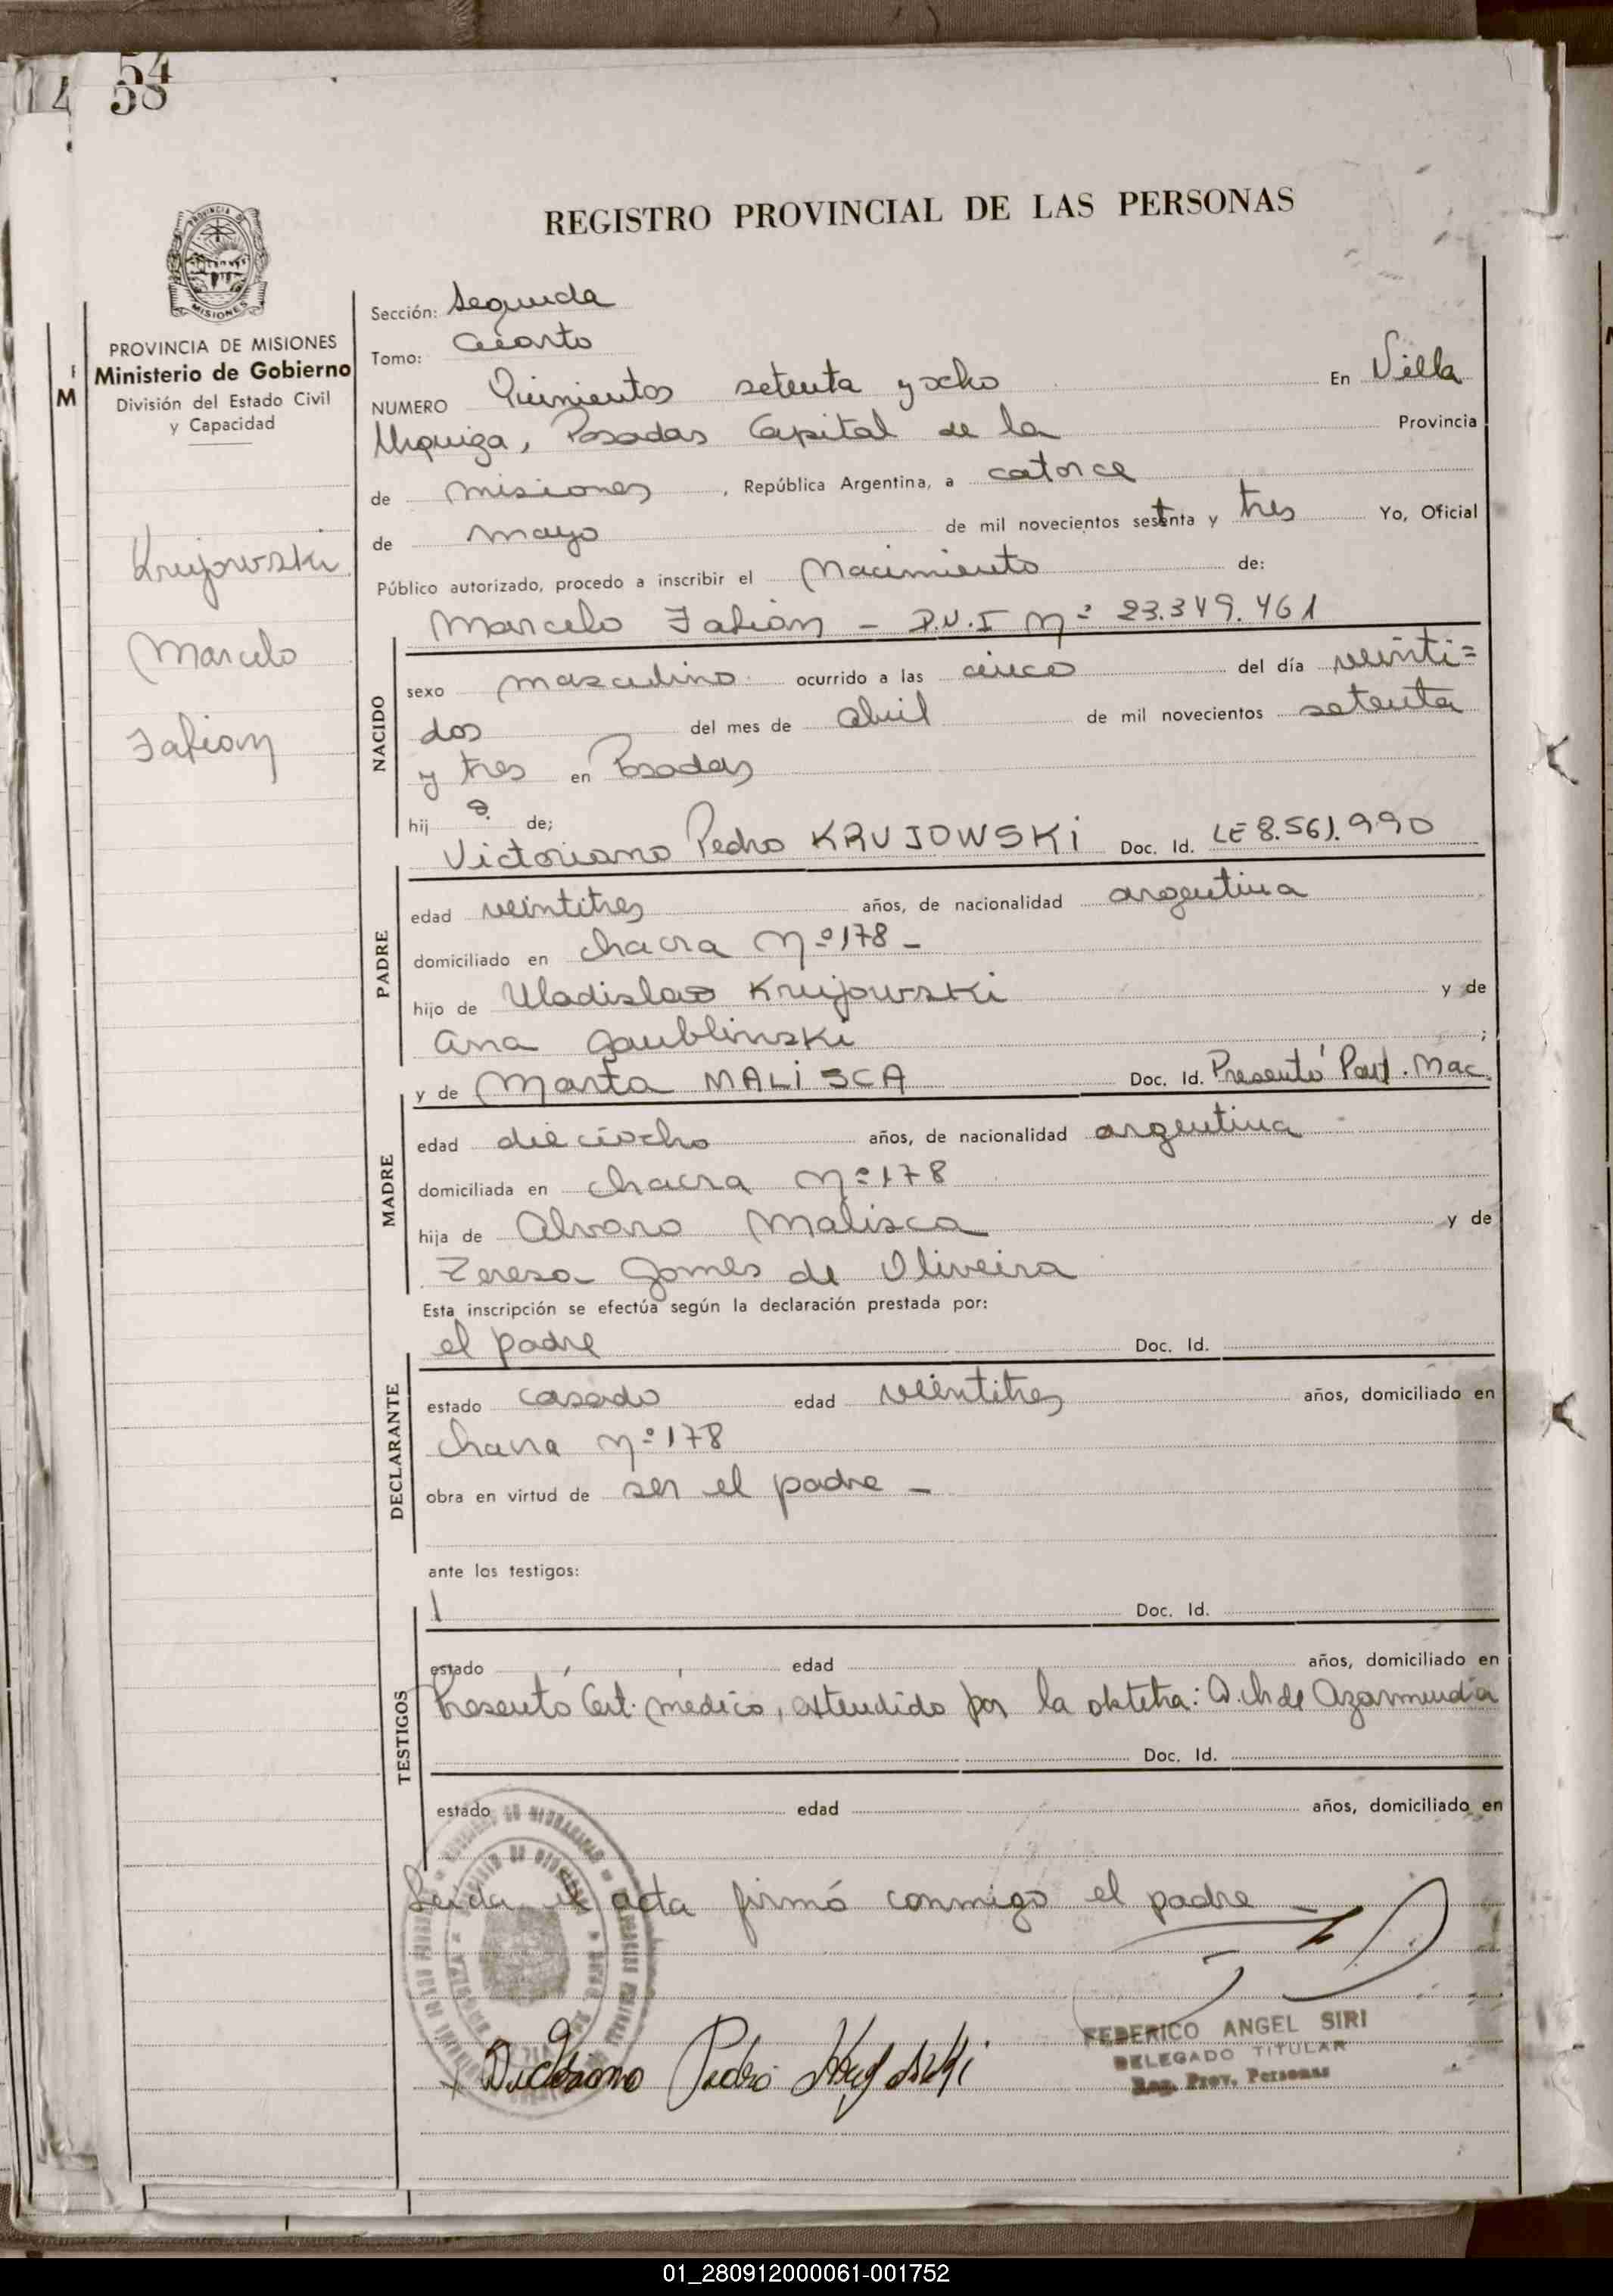 54
58
REGISTRO PROVINCIAL DE LAS PERSONAS
PROVINCIA DE MISIONES
Ministerio de Gobierno
División del Estado Civil
y Capacidad
Krujowski
Marcelo
Fabian
Sección: Segunda
Tomo: Cuarto
NUMERO Quinientos setenta y ocho En Villa
Urquiza, Posadas Capital de la Provincia
de misiones, República Argentina, a catorce
de mayo de mil novecientos setenta y tres Yo, Oficial
Público autorizado, procedo a inscribir el Nacimiento de:
Marcelo Fabián - D.N.I Nº 23.349.461
NACIDO
sexo masculino ocurrido a las cinco del día veinti=
dos del mes de abril de mil novecientos setenta
y tres en Posadas
hij o. de;
Victoriano Pedro KRUJOWSKi Doc. Id. LE 8.561.990
PADRE
edad veintitres años, de nacionalidad argentina
domiciliado en chacra Nº 178 -
hijo de Uladislao Krujowski y de
Ana Gaublinski ;
y de Marta MALiSCA Doc. Id. Presentó Part. Nac.
MADRE
edad dieciocho años, de nacionalidad argentina
domiciliada en chacra Nº 178
hija de Alvaro Malisca y de
Teresa Gomes de Oliveira
Esta inscripción se efectúa según la declaración prestada por:
el padre Doc. Id.
DECLARANTE
estado casado edad veintitres años, domiciliado en
chacra Nº 178
obra en virtud de ser el padre -
ante los testigos:
Doc. Id.
TESTIGOS
estado edad años, domiciliado en
Presentó Cert. medico, extendido por la obstetra: de Azarmendia
Doc. Id.
estado edad años, domiciliado en
Leida el acta firmó conmigo el padre -
FEDERICO ANGEL SIRI
DELEGADO TITULAR
Reg. Prov. Personas
Victoriano Pedro Krujowski
01_280912000061-001752